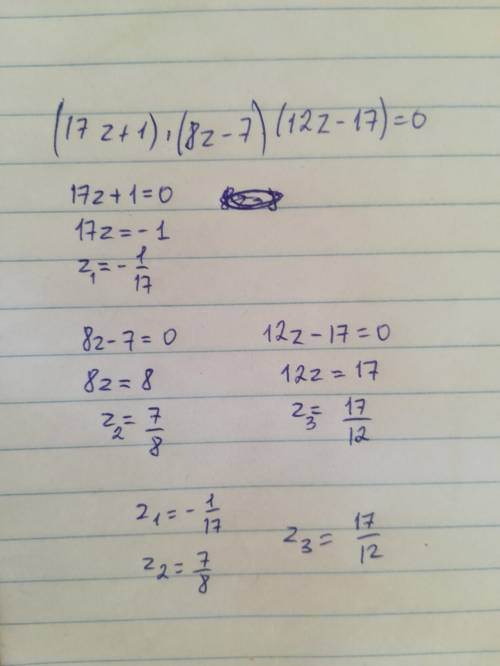 (17z+1)·(8z-7)(12z-17)=0
17z+1=0
17z=-1
z₁=-1/17
8z-7=0
8z=8
z₂=7/8
12z-17=0
12z=17
z₃=17/12
z₁=-1/17
z₂=7/8
z₃=17/12